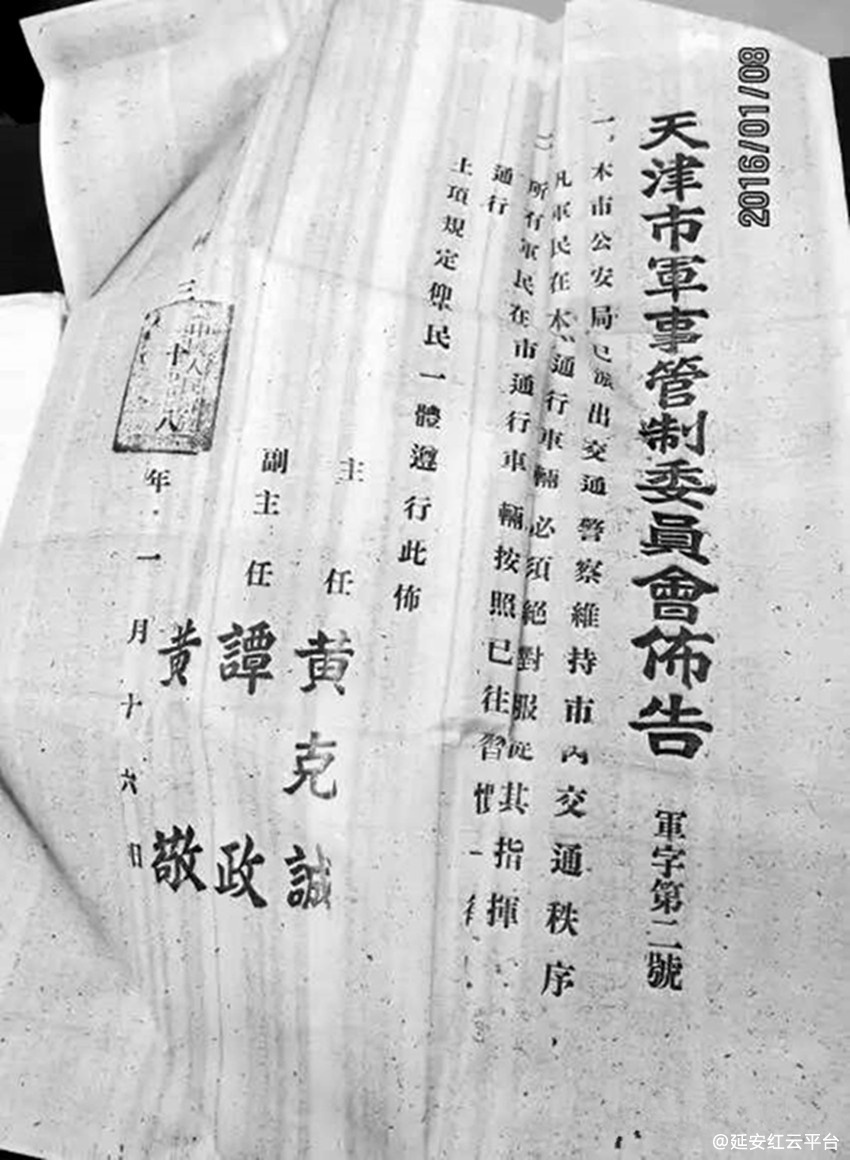 2016/01/08
天津市軍事管制委員會佈告 軍字第二號
一，本市公安局已派出交通警察維持市內交通秩序
凡軍民在本通行車輛必須絕對服從其指揮
所有軍民在市通行車輛按照已往習慣一律
通行
上項規定仰民一體遵行此佈
主任 黃克誠
副主任 譚政
黃敬
三十八年一月十六日
@延安红云平台